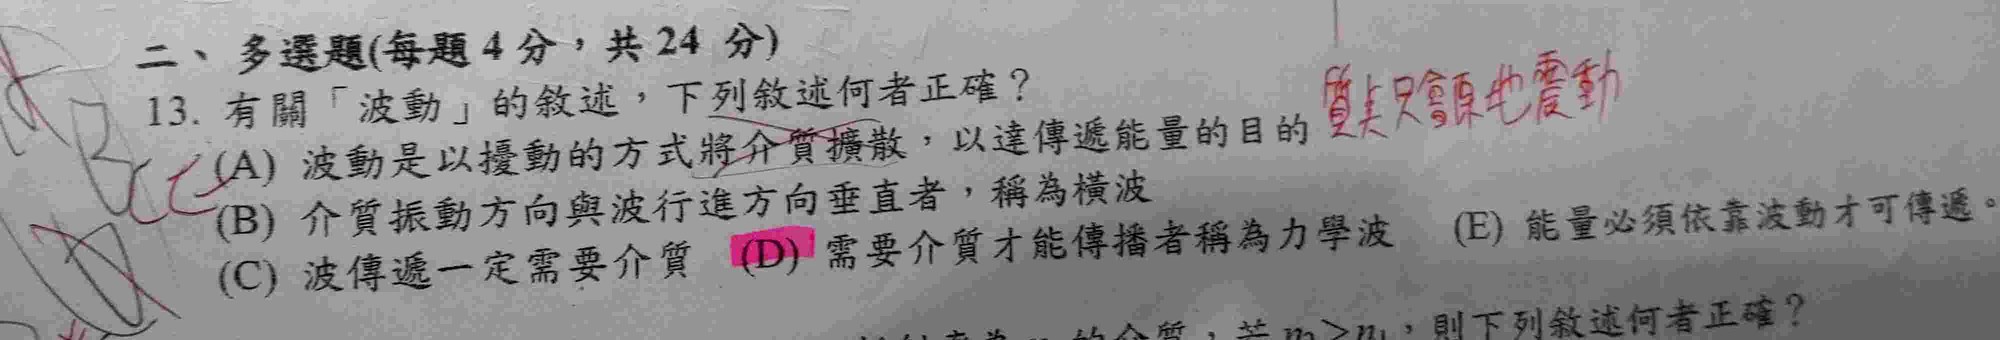 二、多選題(每題 4 分，共 24 分)
13. 有關「波動」的敘述，下列敘述何者正確？
(A) 波動是以擾動的方式將介質擴散，以達傳遞能量的目的 質点只會原地震動
(B) 介質振動方向與波行進方向垂直者，稱為橫波
(C) 波傳遞一定需要介質 (D) 需要介質才能傳播者稱為力學波 (E) 能量必須依靠波動才可傳遞。
的介質，若 n₂>n₁，則下列敘述何者正確？